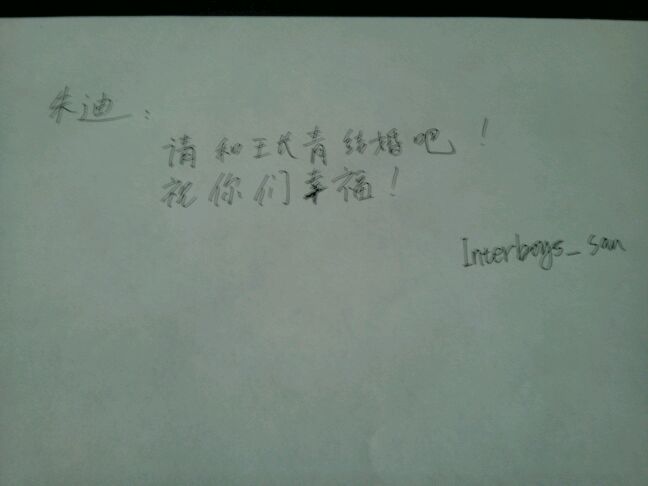 朱迪：
请和王代青结婚吧！
祝你们幸福！
Interboys_san